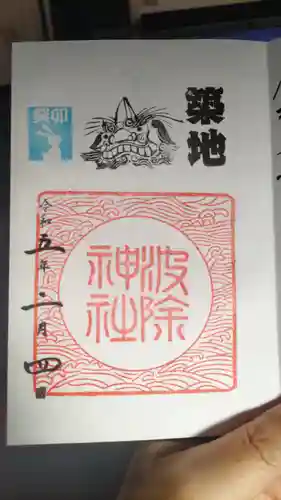 癸卯
築地
波除
神社
令和五年二月四日